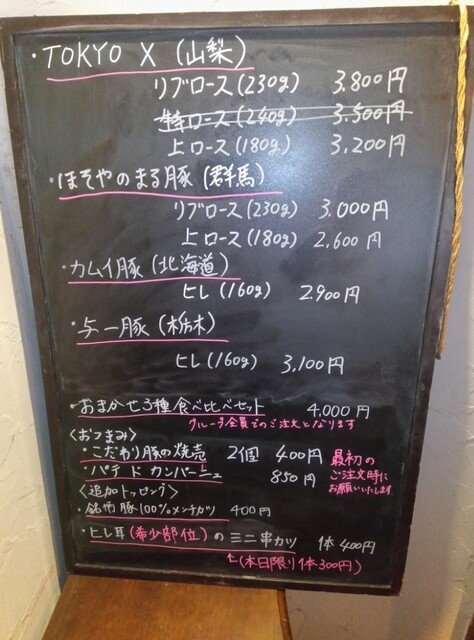 ・TOKYO X (山梨)
リブロース(230g) 3.800円
特ロース(240g) 3.500円
上ロース(180g) 3,200円
・ほそやのまる豚(群馬)
リブロース(230g) 3.000円
上ロース(180g) 2,600円
・カムイ豚(北海道)
ヒレ(160g) 2.900円
・与一豚(栃木)
ヒレ(160g) 3,100円
・おまかせ3種食べ比べセット 4,000円
グループ全員でのご注文となります
〈おつまみ〉
・こだわり豚の焼売 2個 400円
・パテ ド カンパーニュ 850円
最初の
ご注文時に
お願いいたします
〈追加トッピング〉
・銘柄豚100%メンチカツ 400円
・ヒレ耳(希少部位)のミニ串カツ 1本400円
↑(本日限り1本300円)